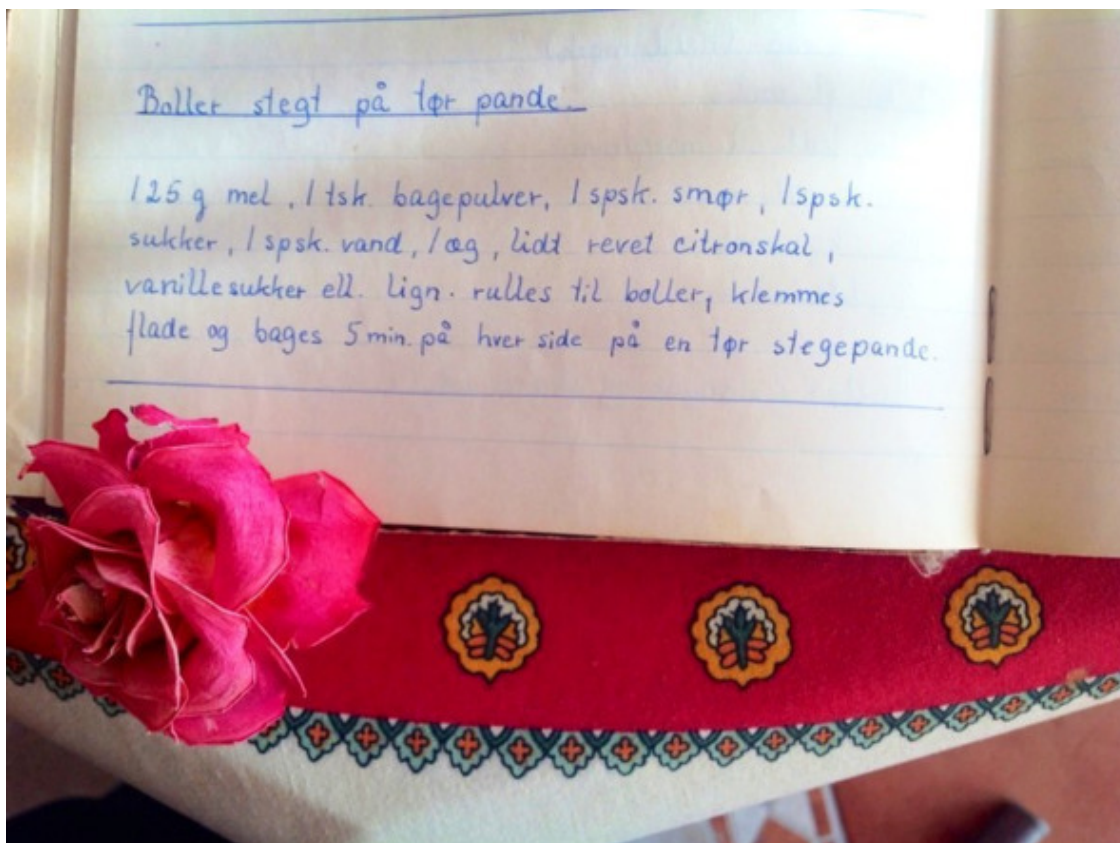 Boller stegt på tør pande.
125 g mel, 1 tsk. bagepulver, 1 spsk. smør, 1 spsk.
sukker, 1 spsk. vand, 1 æg, lidt revet citronskal,
vanillesukker ell. lign. rulles til boller, klemmes
flade og bages 5 min. på hver side på en tør stegepande.